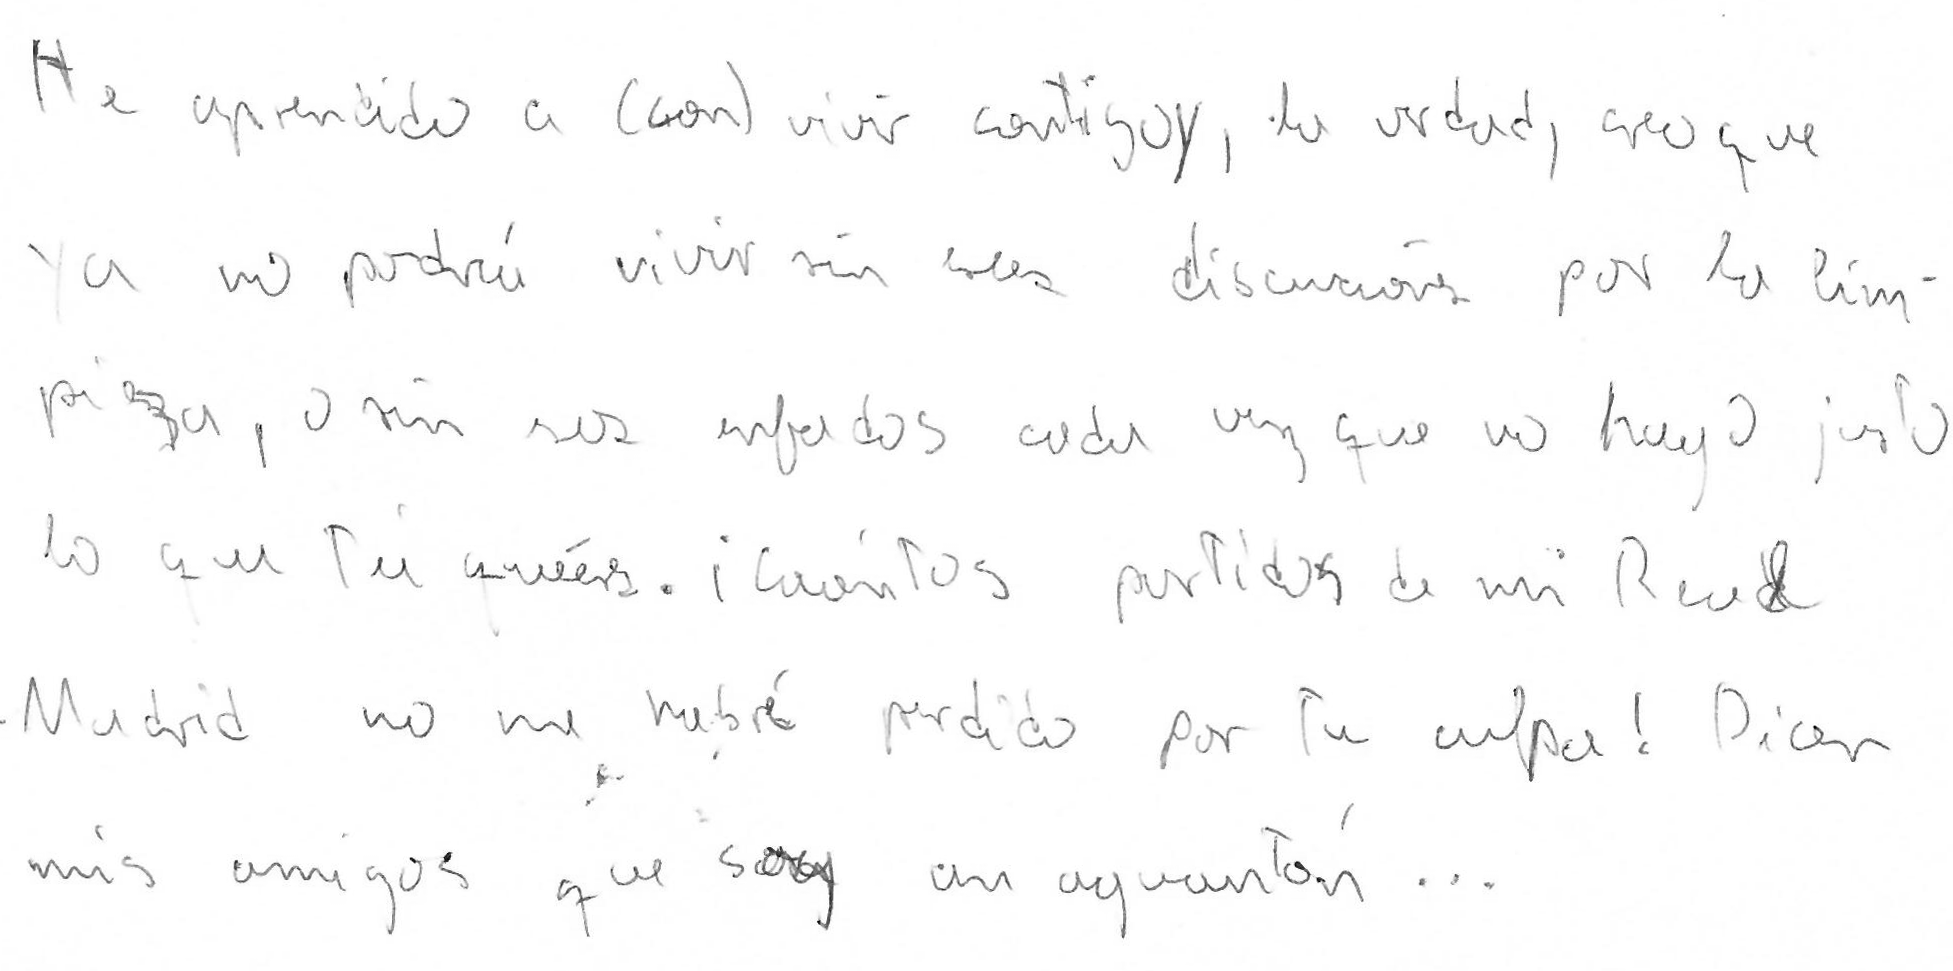 He aprendido a (con)vivir contigo y, la verdad, creo que
ya no podría vivir sin esas discusiones por la lim-
pieza, o sin esos enfados cada vez que no hago justo
lo que tú quieres. ¡Cuántos partidos de mi Real
Madrid no me habré perdido por tu culpa! Dicen
mis amigos que soy un aguantón...